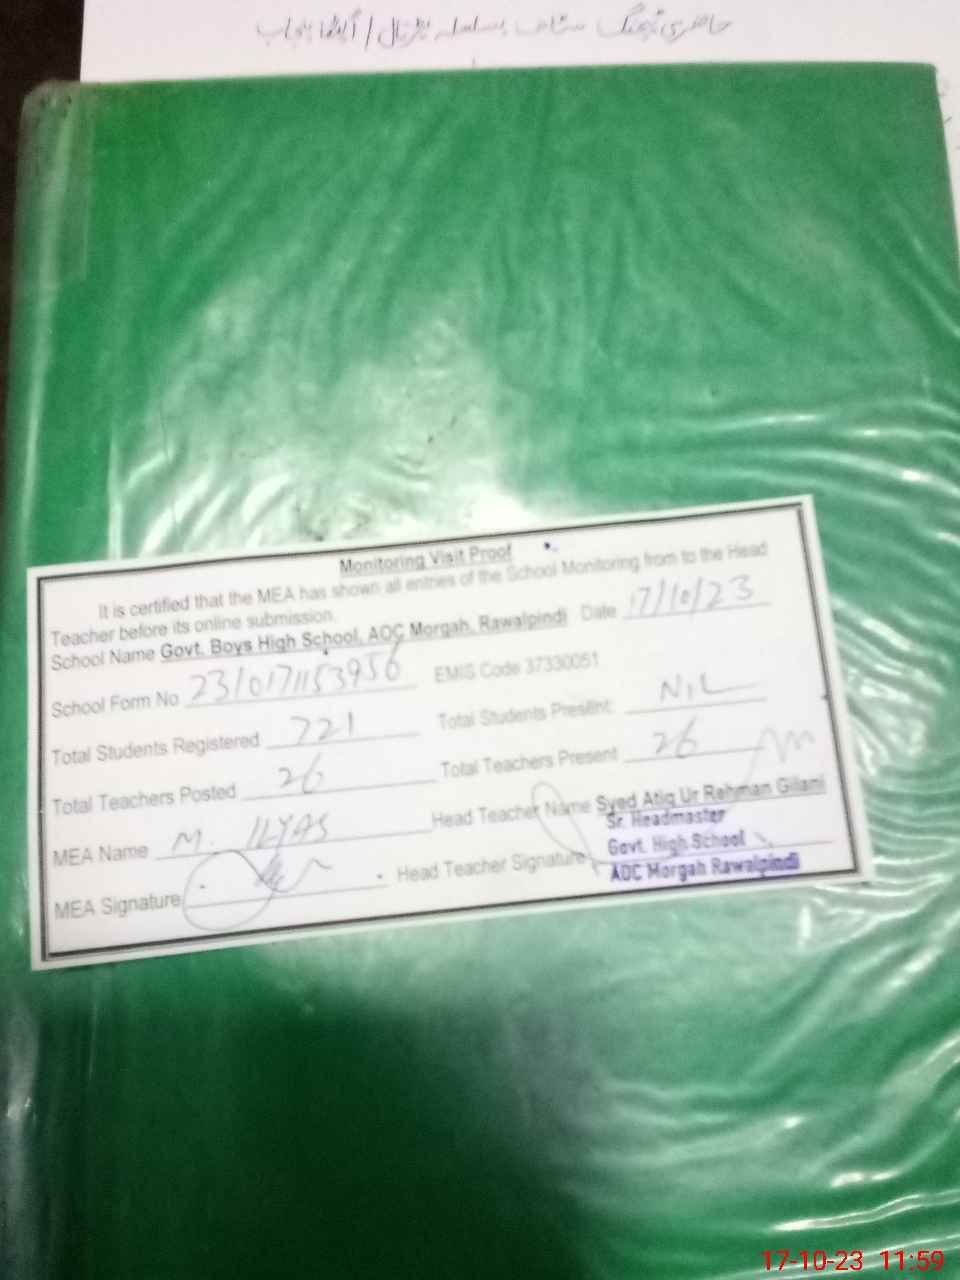 حاضری ٹیچنگ سٹاف بسلسلہ ہڑتال / اگیگا پنجاب
Monitoring Visit Proof
It is certified that the MEA has shown all entries of the School Monitoring from to the Head
Teacher before its online submission.
School Name Govt. Boys High School, AOC Morgah, Rawalpindi Date 17/10/23
School Form No 2310171153956 EMIS Code 37330051
Total Students Registered 721 Total Students Present NIL
Total Teachers Posted 26 Total Teachers Present 26
MEA Name M. ILYAS Head Teacher Name Syed Atiq Ur Rehman Gillani
Sr. Headmaster
Govt. High School
MEA Signature Head Teacher Signature
AOC Morgah Rawalpindi
17-10-23 11:59